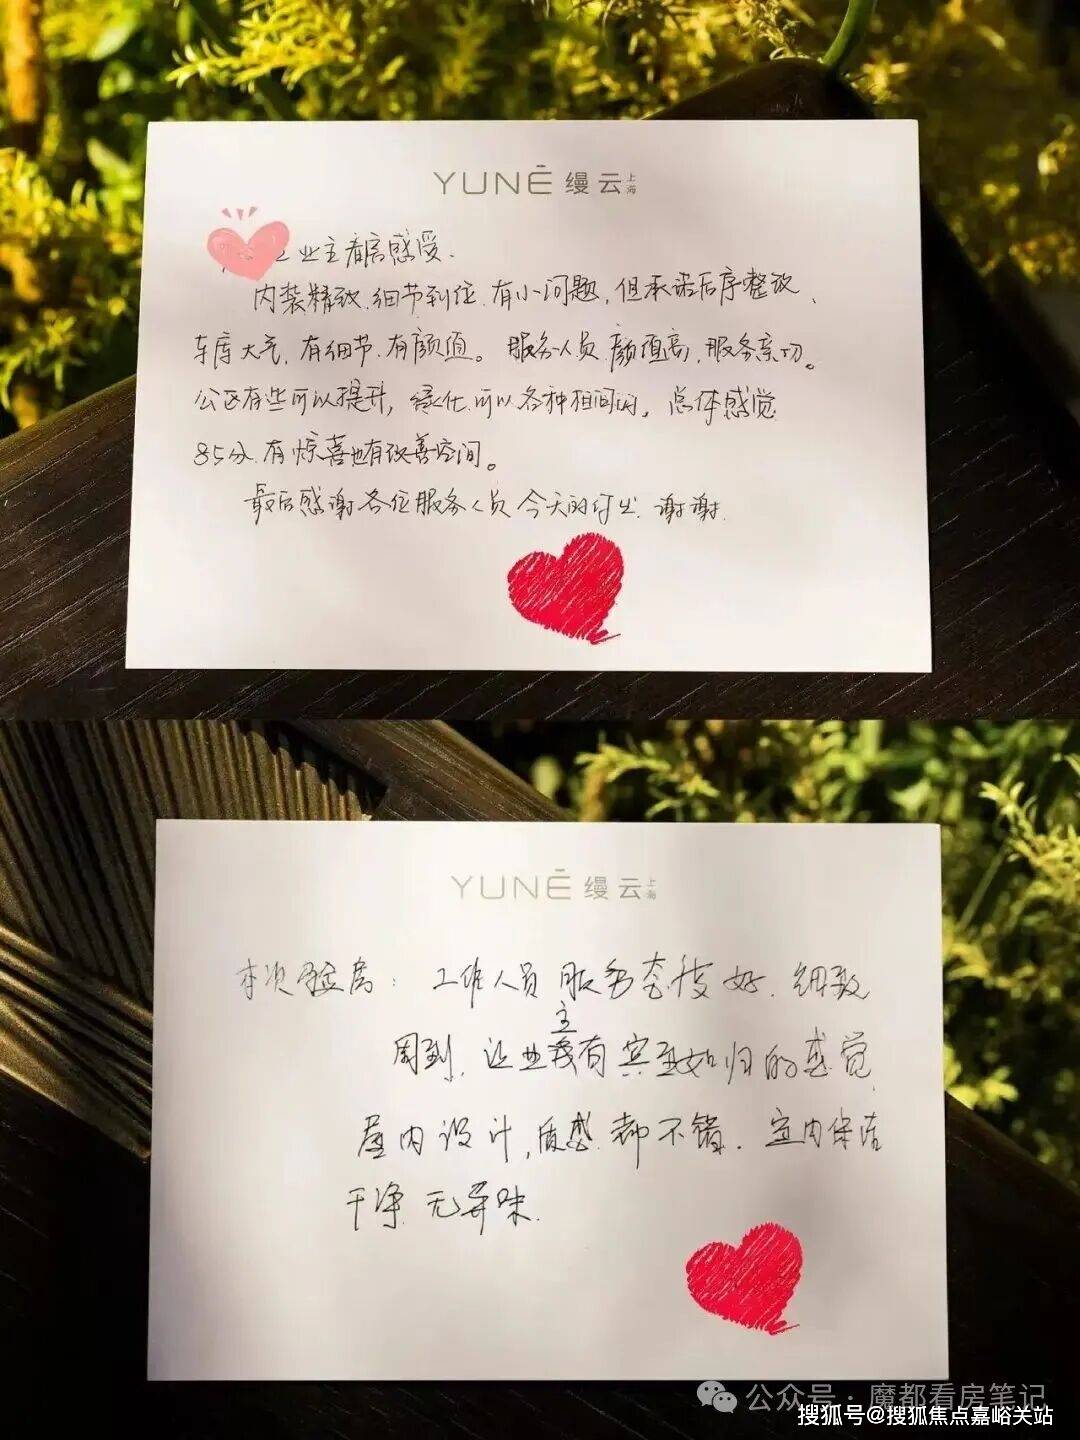 YUNĒ 缦云 上海
业主看房感受.
内装精致.细节到位.有小问题,但承诺后序整改、
车库大气,有细节.有颜值。服务人员.颜值高,服务亲切。
公区有些可以提升,绿化可以各种相间的,总体感觉
85分.有惊喜也有改善空间。
最后感谢各位服务人员今天的付出.谢谢.
YUNĒ 缦云 上海
本次验房:工作人员服务态度好.细致
周到,让业主有宾至如归的感觉.
屋内设计,质感.都不错.室内保洁
干净.无异味.
公众号·魔都看房笔记
搜狐号@搜狐焦点嘉峪关站